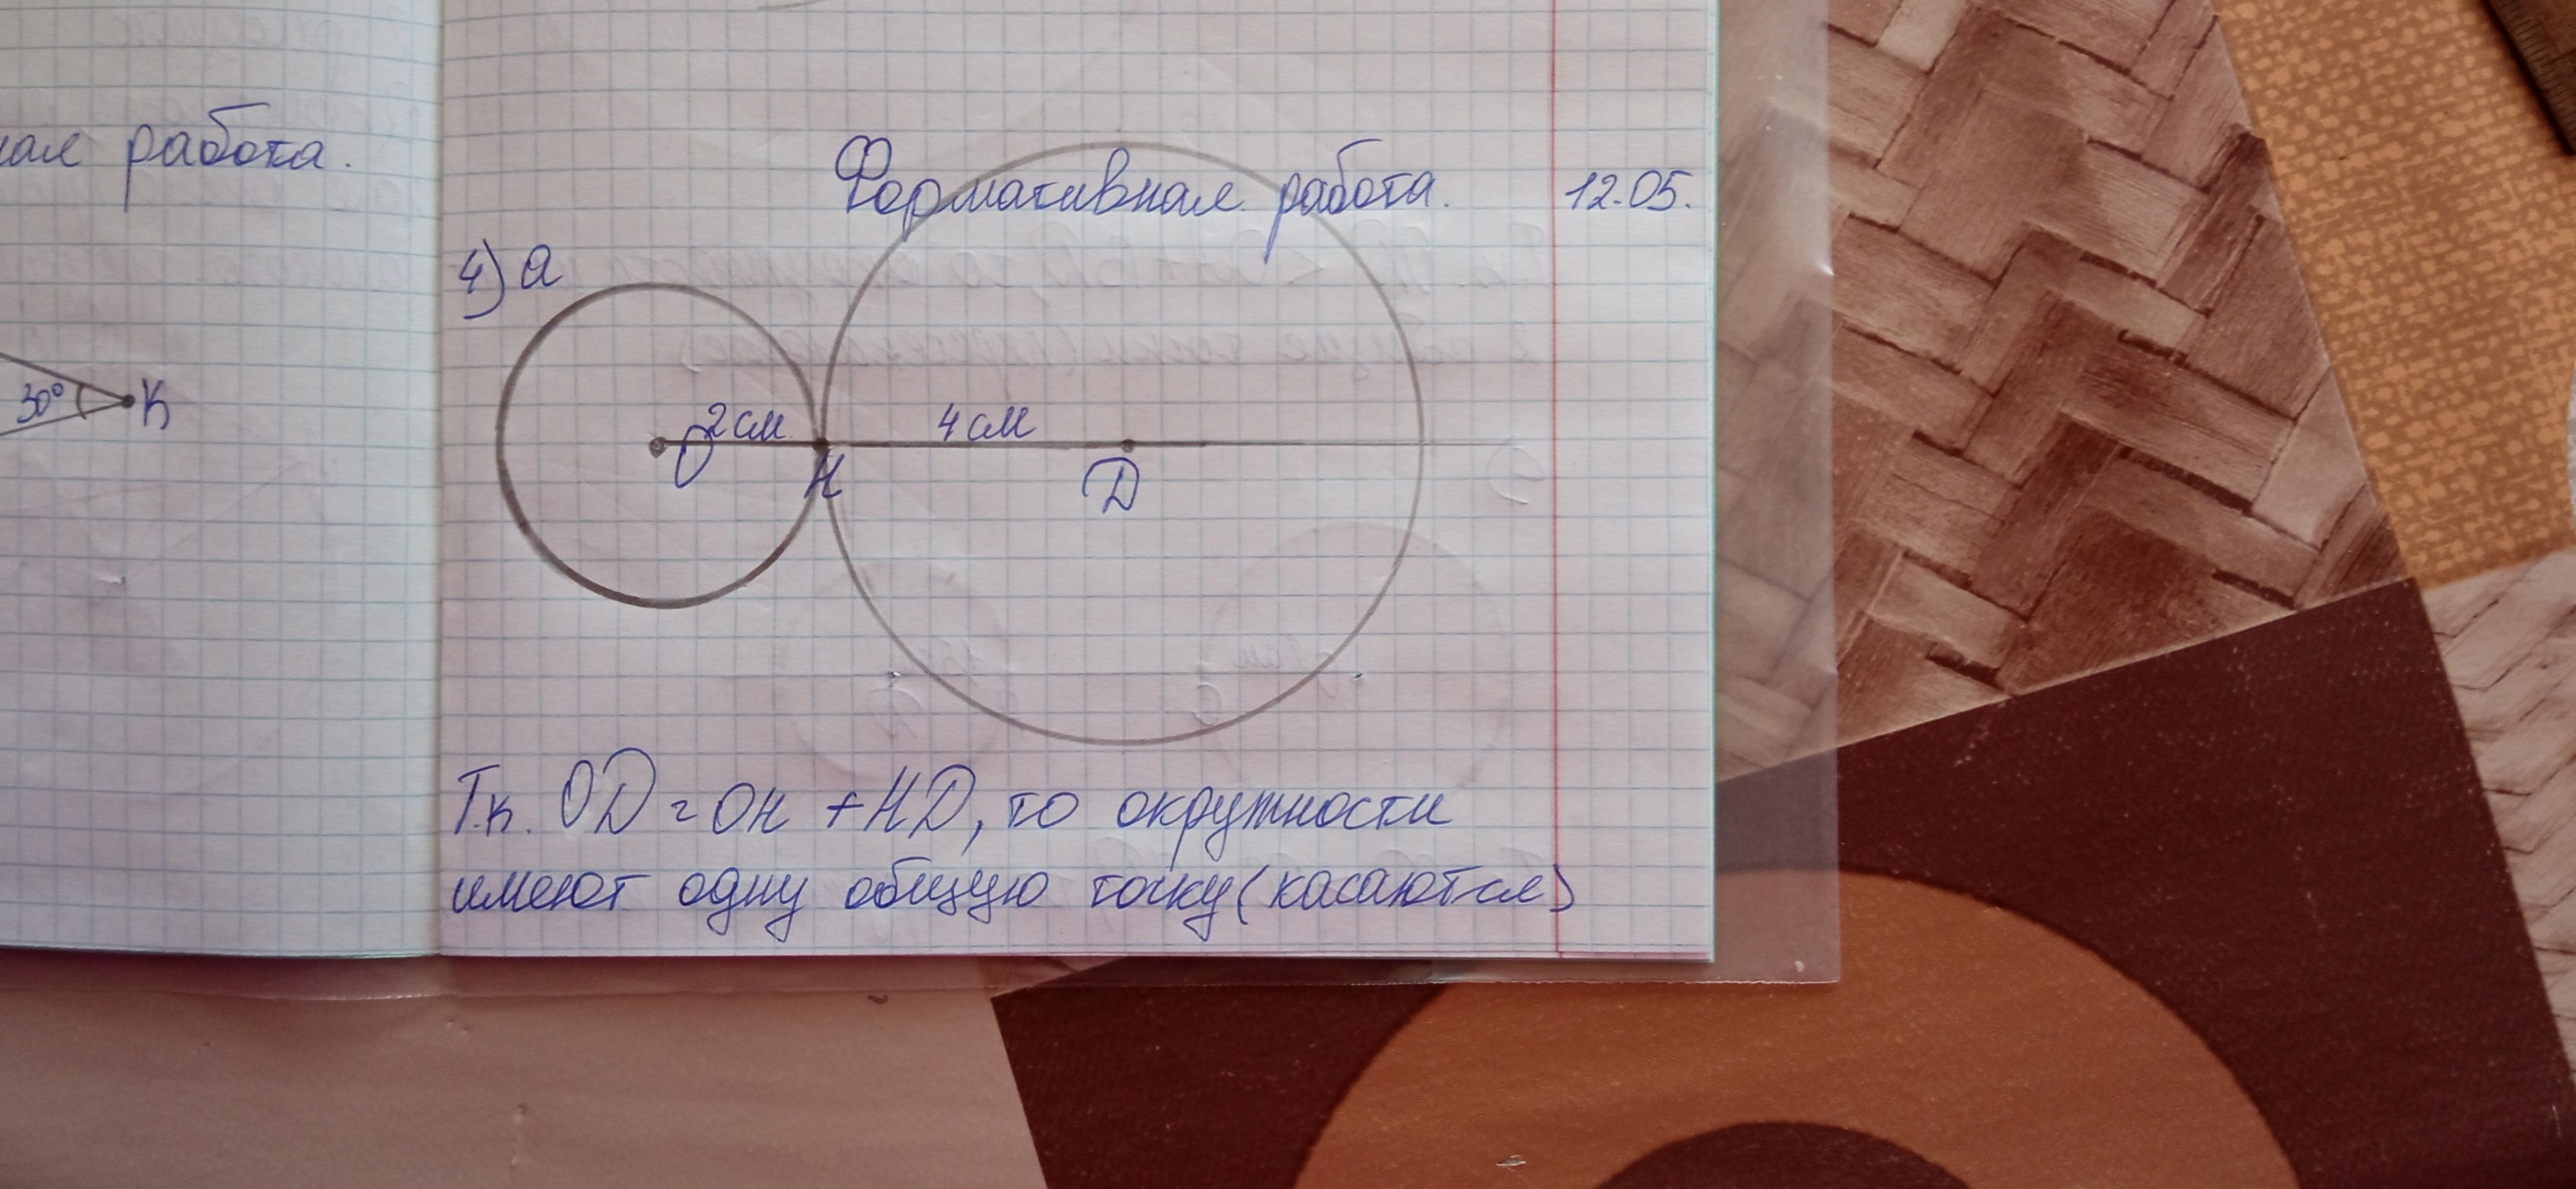 работа.
30° К
Формативная работа. 12.05.
4) а
2 см 4 см
О Н D
Т.к. OD = ОН + HD, то окружности
имеют одну общую точку (касаются)